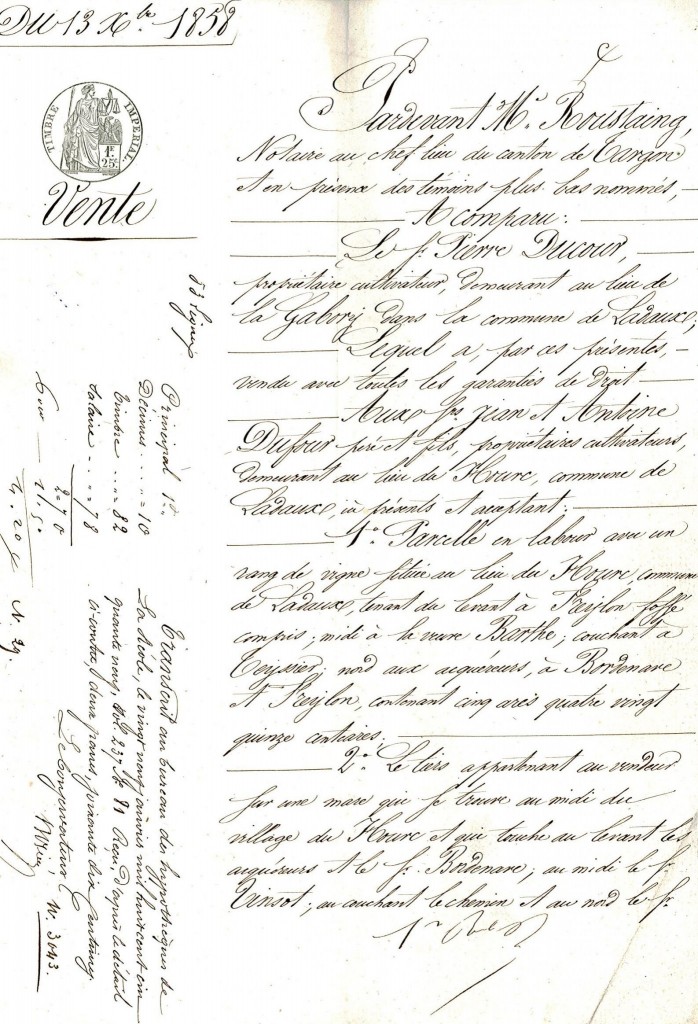 Du 13 Xbre 1858
TIMBRE IMPERIAL
1F.
25c.
Vente
Pardevant Me Roustaing,
Notaire au chef lieu du canton de Targon
et en présence des témoins plus bas nommés,
A comparu:
Le sr Pierre Ducour,
propriétaire cultivateur, demeurant au lieu de
la Gabory dans la commune de Ladaux.
Lequel a, par ces présentes,
vendu avec toutes les garanties de droit
Aux srs Jean et Antoine
Dufour père et fils, propriétaires cultivateurs,
demeurant au lieu du Hourc, commune de
Ladaux, ici présents et acceptant:
1o Parcelle en labour avec un
rang de vigne située au lieu du Hourc, commune
de Ladaux, tenant du levant à Freylon fossé
compris; midi à la veuve Barthe; couchant à
Teyssier; nord aux acquéreurs, à Bordenave
et Freylon, contenant cinq ares quatre vingt
quinze centiares.
2o Le tiers appartenant au vendeur
sur une mare qui se trouve au midi du
village du Hourc et qui touche au levant les
acquéreurs et le sr Bordenave; au midi le sr
Vinsot; au couchant le chemin et au nord le sr
1er
Principal 1
Décimes 10
Timbre 82
Salaire 78
2=70
Transcrit au bureau des hypothèques de
La Réole, le vingt neuf janvier mil huit cent cin
quante neuf, vol 237 No 81 Reçu d'après le détail
ci contre, deux francs, soixante dix centimes
Le Conservateur
N. 3043.
N. 29